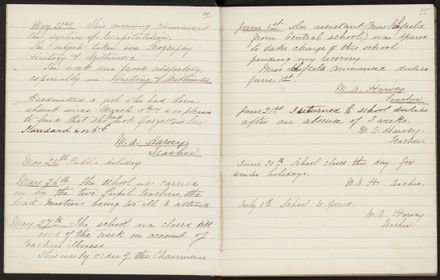 May 23rd This morning commenced
the system of Recapitulation.
The subjects taken were Geography
History & Arithmetic.
The work was found satisfactory
especially in History & Arithmetic
Readmitted a girl who had been
absent since March 5th was pleased
to find that she had forgotten her
Standard work
M. A. Harvey
Teacher
May 24th Public holiday
May 26th The School was carried
on by the two Pupil Teachers, the
head mistress being too ill to attend.
May 27th The school was closed till
end of the week on account of
Teacher's illness.
This was by order of the Chairman
June 1st An assistant (Miss
from Central school) was spared
to take charge of this school
pending my recovery.
Miss commenced duties
June 1st.
M. A. Harvey
Teacher
June 21st I returned to school duties
after an absence of 3 weeks.
M. A. Harvey
Teacher.
June 25th School closes this day for
winter holidays.
M. A. H. Teacher.
July 5th School re-opened.
M. A. Harvey
Teacher